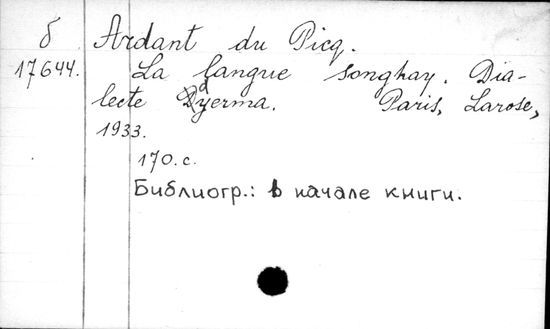 б Ardant du Picq.
17644. La langue songhay. Dia-
lecte dyerma. Paris, Larose,
1933.
170.с.
Библиогр.: в начале книги.